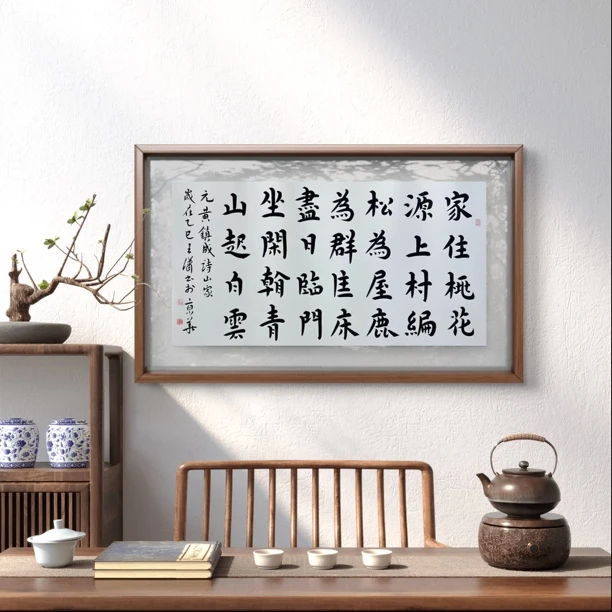 家住桃花
源上村編
松為屋鹿
為群匡床
盡日臨門
坐閑翰青
山起白雲
元黄鎮成詩山家
歲在乙巳王瀟書於京華